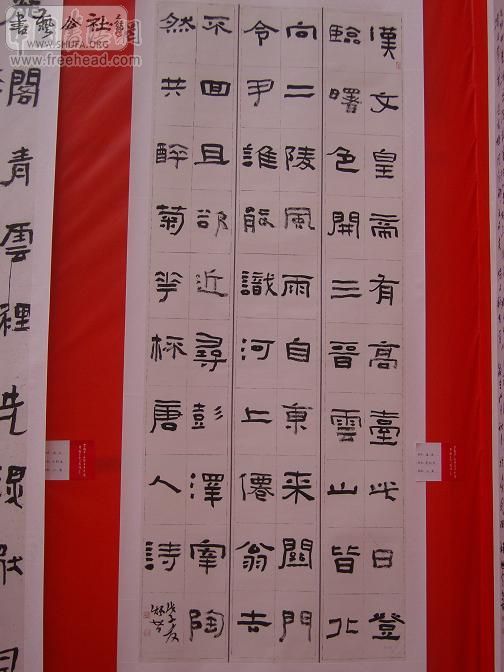 書藝公社
WWW.SHUFA.ORG
www.freehead.com
漢文皇帝有高臺此日登
臨曙色開三晉雲山皆北
向二陵風雨自東來關門
令尹誰能識河上僊翁去
不回且欲近尋彭澤宰陶
然共醉菊花杯唐人詩
閣青雲裡